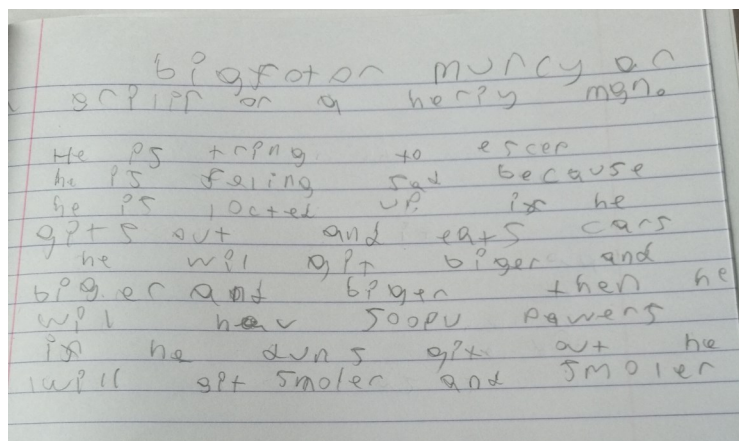 bigfot or muncy or
grpipp or a herpy man.
He is trping to escep
he is feling sad because
he is locted up. if he
gits out and eats cars
he wil git biger and
biger and biger then he
wil hav soopu pawers
if he duns git out he
will git smoler and smoler